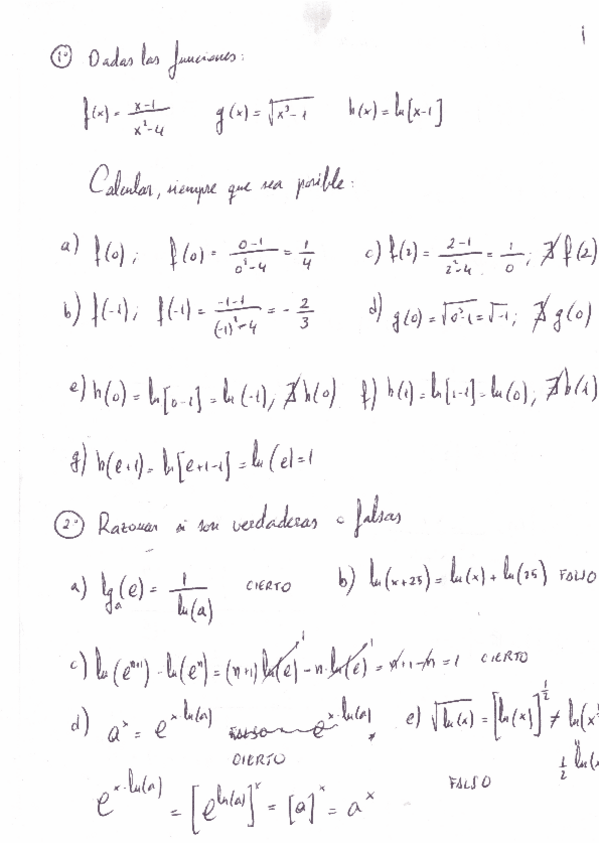 i
1º Dadas las funciones:
f(x) = x-1 / x²-4   g(x) = √x³-1   h(x) = ln[x-1]
Calcular, siempre que sea posible:
a) f(0); f(0) = 0-1 / 0²-4 = 1/4   c) f(2) = 2-1 / 2²-4 = 1/0; ∄ f(2)
b) f(-1); f(-1) = -1-1 / (-1)²-4 = - 2/3   d) g(0) = √0³-1 = √-1; ∄ g(0)
e) h(0) = ln[0-1] = ln(-1); ∄ h(0)   f) h(1) = ln[1-1] = ln(0); ∄ h(1)
g) h(e+1) = ln[e+1-1] = ln(e) = 1
2º Razonar si son verdaderas o falsas
a) lgₐ(e) = 1 / ln(a)   CIERTO   b) ln(x+25) = ln(x) + ln(25) FALSO
c) ln(eⁿ⁺¹) - ln(eⁿ) = (n+1) ln(e) - n·ln(e) = n+1-n = 1   CIERTO
d) aˣ = e^x·ln(a)   FALSO   e^x·ln(a)   e) √ln(x) = [ln(x)]^1/2 ≠ ln(x
CIERTO   1/2 ln(x
e^x·ln(a) = [e^ln(a)]ˣ = [a]ˣ = aˣ   FALSO